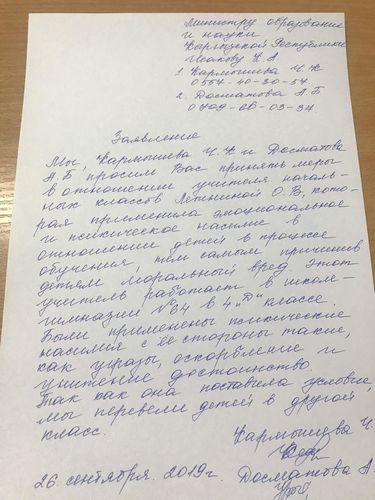 Министру образования
и науки
Кыргызской Республики
Исакову К А
1. Кармышева Ч. К
0557-40-20-57
2. Досматова А Б
0709-66-03-34
Заявление
Мы, Кармышева Ч. К и Досматова
А.Б просим Вас принять меры
в отношении учителя началь-
ных классов Летниной О.В, кото-
рая применила эмоциональное
и психическое насилие в
отношении детей в процессе
обучения, тем самым причинив
детям моральный вред. Этот
учитель работает в школе-
гимназии №64 в 4 "Д" классе.
Были применены психические
насилия с ее стороны такие,
как угрозы, оскорбление и
унитение достоинство.
Так как она поставила условие,
мы перевели детей в другой
класс.
Кармышева Ч.
26 сентября. 2019г. Досматова А.